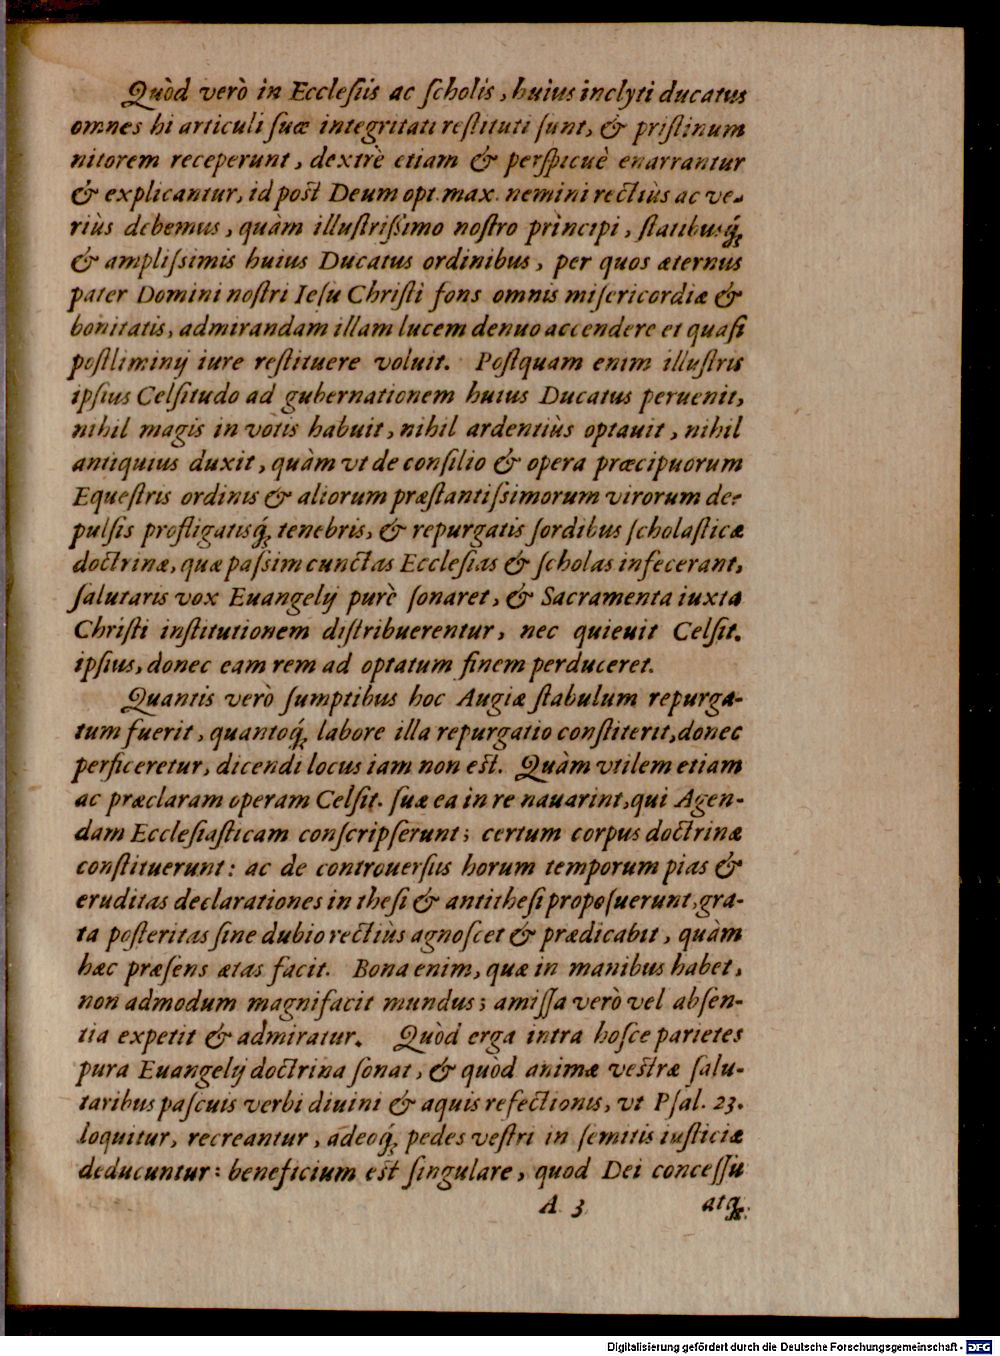 Quòd verò in Ecclesiis ac scholis, huius inclyti ducatus
omnes hi articuli suæ integritati restituti sunt, & pristinum
nitorem receperunt, dextrè etiam & perspicuè enarrantur
& explicantur, id post Deum opt. max. nemini rectiùs ac ve-
riùs debemus, quàm illustrissimo nostro principi, statibusq́;
& amplissimis huius Ducatus ordinibus, per quos æternus
pater Domini nostri Iesu Christi fons omnis misericordiæ &
bonitatis, admirandam illam lucem denuo accendere et quasi
postliminij iure restituere voluit. Postquam enim illustris
ipsius Celsitudo ad gubernationem huius Ducatus peruenit,
nihil magis in votis habuit, nihil ardentiùs optauit, nihil
antiquius duxit, quàm vt de consilio & opera præcipuorum
Equestris ordinis & aliorum præstantissimorum virorum de-
pulsis profligatisq́; tenebris, & repurgatis sordibus scholasticæ
doctrinæ, quæ passim cunctas Ecclesias & scholas infecerant,
salutaris vox Euangelij purè sonaret, & Sacramenta iuxta
Christi institutionem distribuerentur, nec quieuit Celsit.
ipsius, donec eam rem ad optatum finem perduceret.
Quantis verò sumptibus hoc Augiæ stabulum repurga-
tum fuerit, quantoq́; labore illa repurgatio constiterit, donec
perficeretur, dicendi locus iam non est. Quàm vtilem etiam
ac præclaram operam Celsit. suæ ea in re nauarint, qui Agen-
dam Ecclesiasticam conscripserunt; certum corpus doctrinæ
constituerunt: ac de controuersiis horum temporum pias &
eruditas declarationes in thesi & antithesi proposuerunt, gra-
ta posteritas sine dubio rectiùs agnoscet & prædicabit, quàm
hæc præsens ætas facit. Bona enim, quæ in manibus habet,
non admodum magnifacit mundus; amissa verò vel absen-
tia expetit & admiratur. Quòd erga intra hosce parietes
pura Euangelij doctrina sonat, & quòd animæ vestræ salu-
taribus pascuis verbi diuini & aquis refectionis, vt Psal. 23.
loquitur, recreantur, adeoq́; pedes vestri in semitis iusticiæ
deducuntur: beneficium est singulare, quod Dei concessu
A 3 atq;
Digitalisierung gefördert durch die Deutsche Forschungsgemeinschaft - DFG